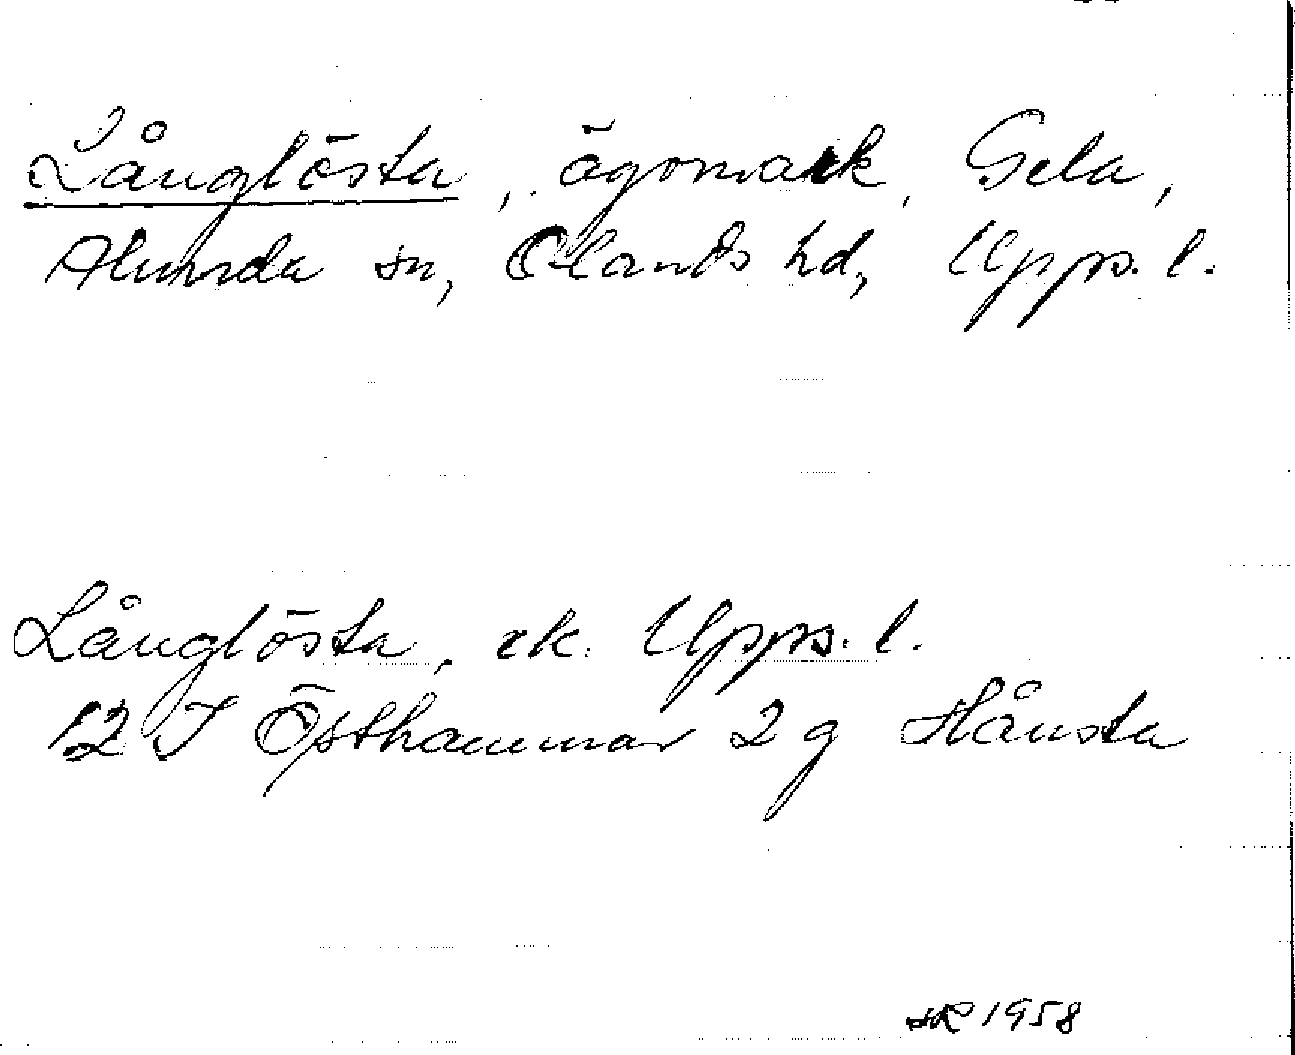 Långlösta, ägomark, Gela,
Alunda sn, Olands hd, Upps. l.
Långlösta, ek. Upps. l.
12 I Östhammar 2 g Hånsta
HR 1958